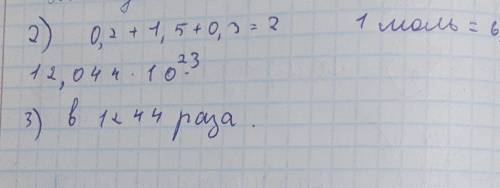 2) 0,2 + 1,5 + 0,3 = 2 1 моль = 6
12,044 · 10²³
3) в 1244 раза.